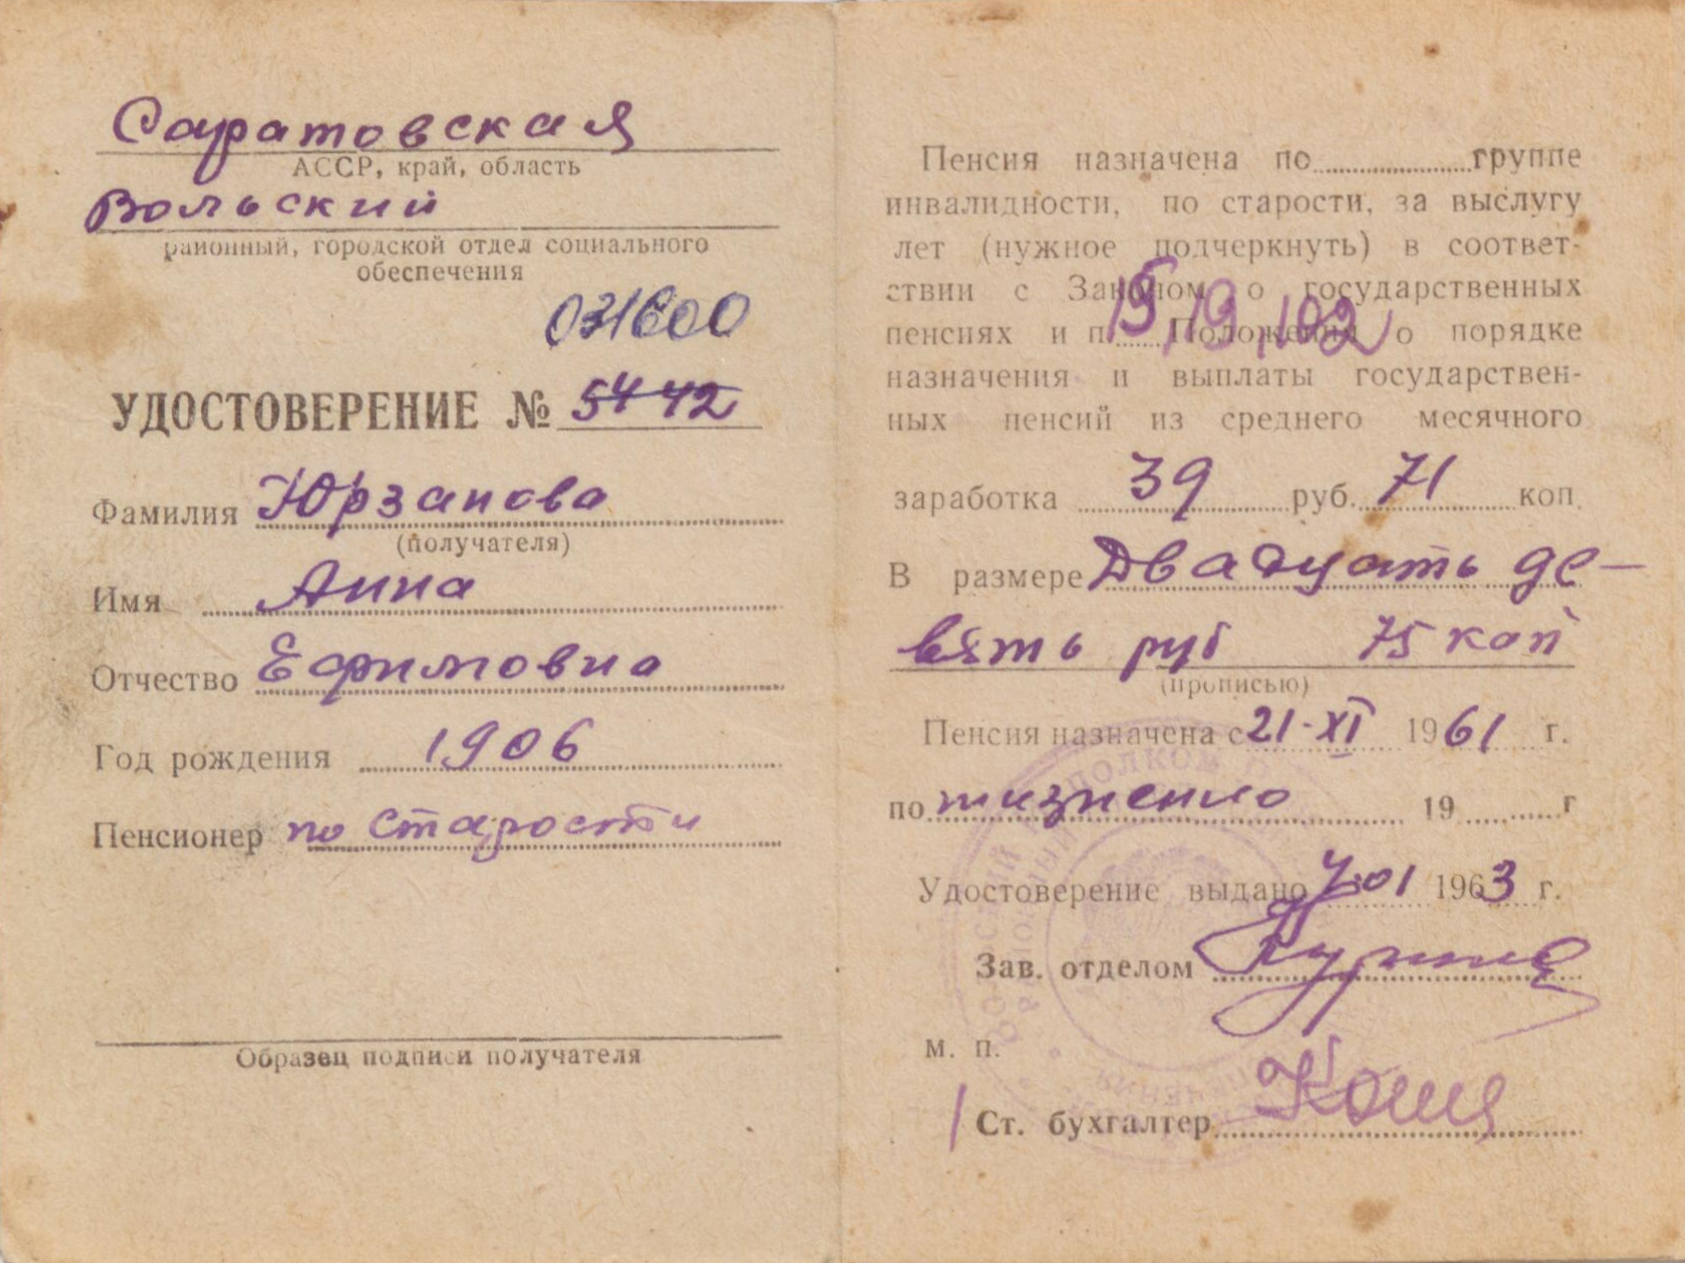 Саратовская
АССР, край, область
Вольский
районный, городской отдел социального
обеспечения
031600
УДОСТОВЕРЕНИЕ № 5442
Фамилия Юрзанова
(получателя)
Имя Анна
Отчество Ефимовна
Год рождения 1906
Пенсионер по старости
Образец подписи получателя
Пенсия назначена по группе
инвалидности, по старости, за выслугу
лет (нужное подчеркнуть) в соответ-
ствии с Законом о государственных
пенсиях и п. 19, 102 Положения о порядке
назначения и выплаты государствен-
ных пенсий из среднего месячного
заработка 39 руб. 71 коп.
В размере Двадцать де-
вять руб 75 коп
(прописью)
Пенсия назначена с 21-XI 1961 г.
по жизненно 19 г
Удостоверение выдано 7-01 1963 г.
Зав. отделом
М. П.
Ст. бухгалтер